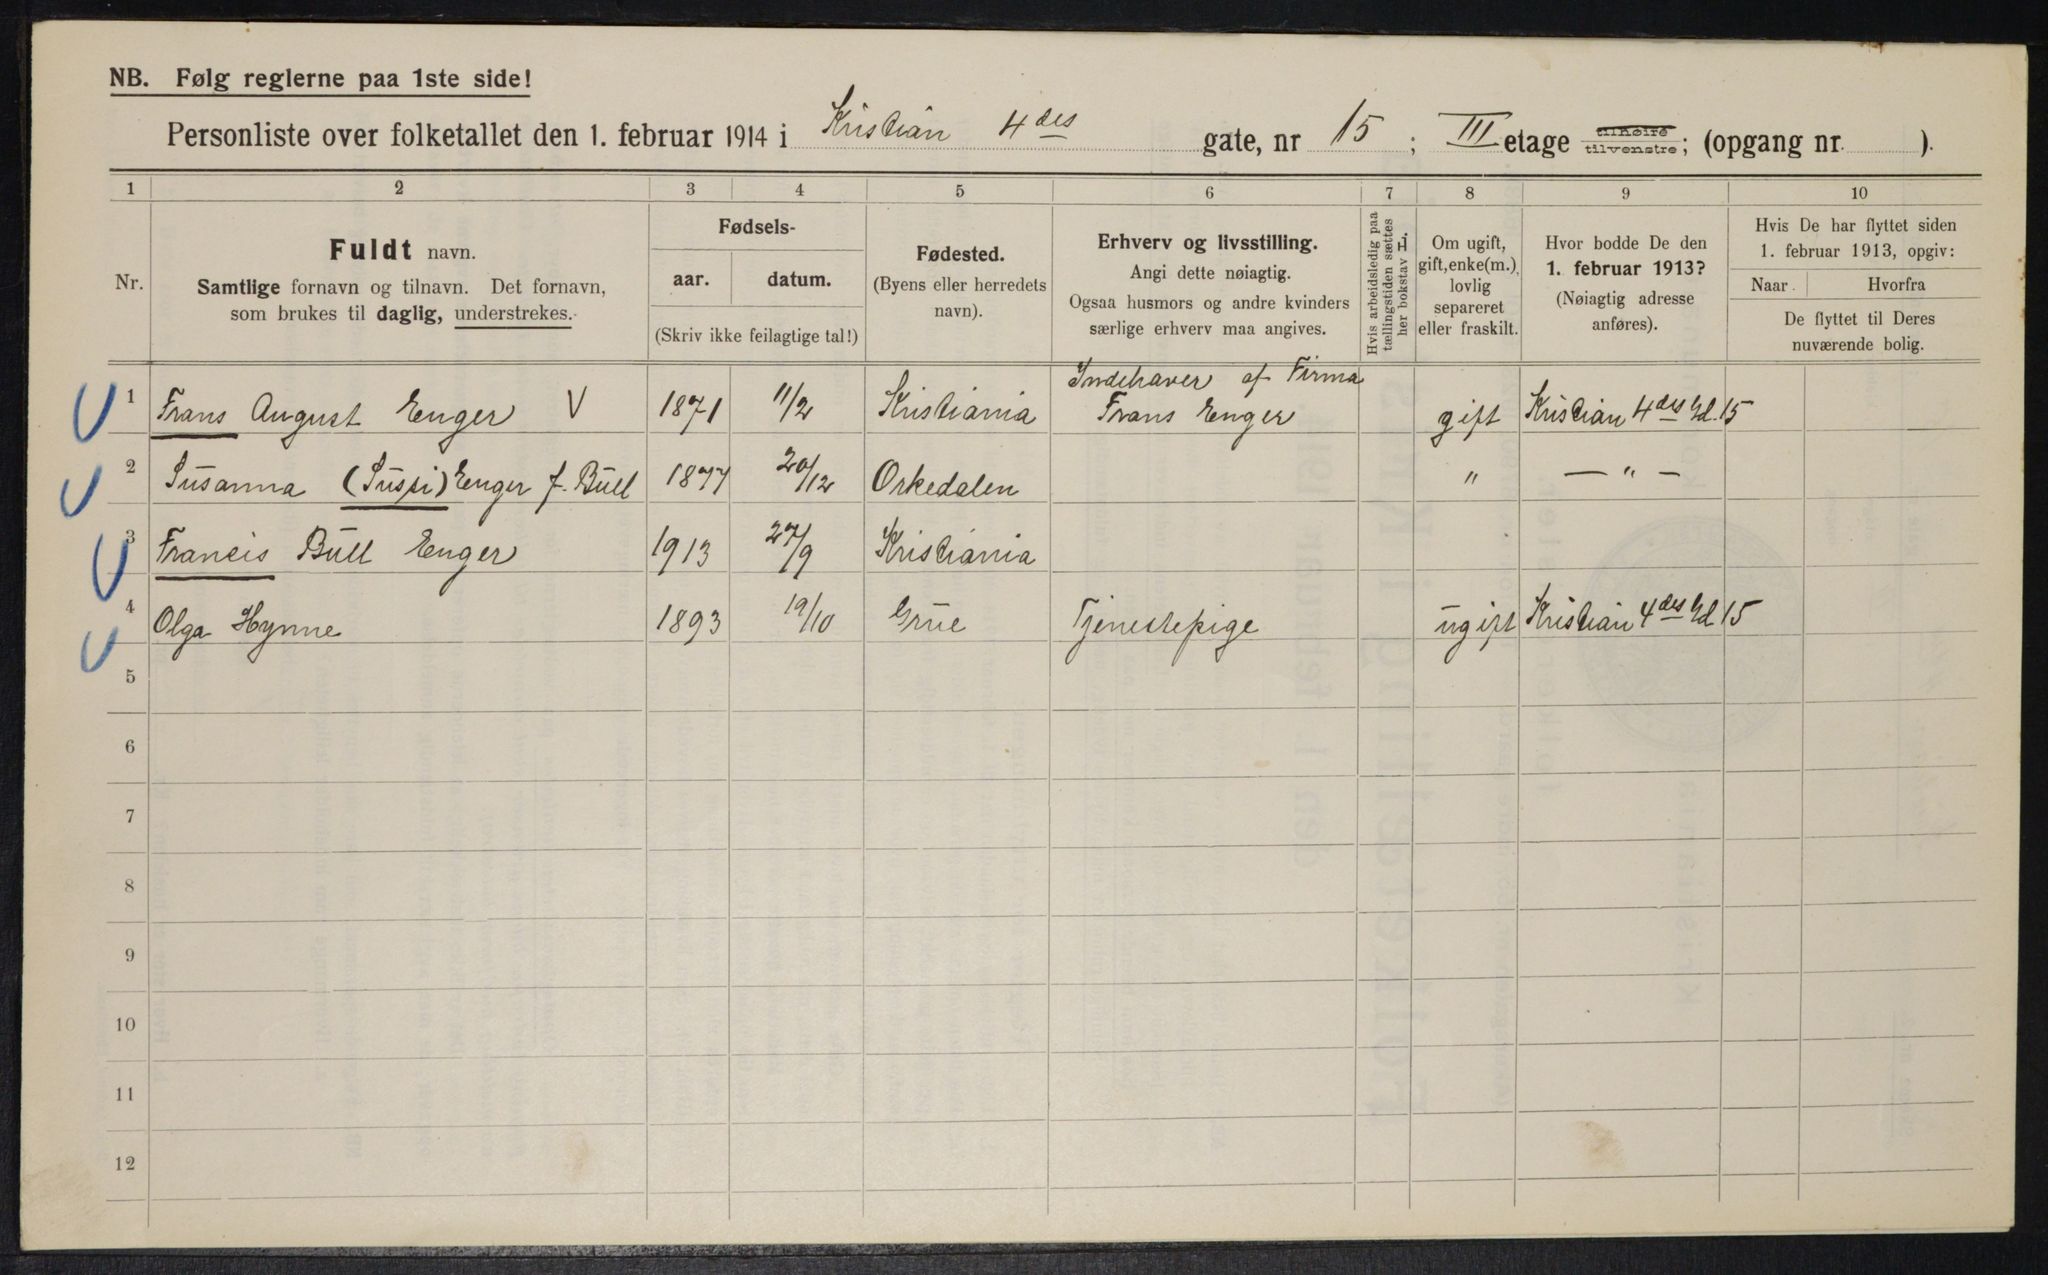 NB. Følg reglerne paa 1ste side!
Personliste over folketallet den 1. februar 1914 i Kristian 4des gate, nr 15; III etage tilhøire tilvenstre; (opgang nr. ).
1 2 3 4 5 6 7 8 9 10
Nr.
Fuldt navn.
Samtlige fornavn og tilnavn. Det fornavn,
som brukes til daglig, understrekes.
Fødsels-
aar. datum.
(Skriv ikke feilagtige tal!)
Fødested.
(Byens eller herredets
navn).
Erhverv og livsstilling.
Angi dette nøiagtig.
Ogsaa husmors og andre kvinders
særlige erhverv maa angives.
Hvis arbeidsledig paa
tællingstiden sættes
her bokstav L.
Om ugift,
gift, enke(m.),
lovlig
separeret
eller fraskilt.
Hvor bodde De den
1. februar 1913?
(Nøiagtig adresse
anføres).
Hvis De har flyttet siden
1. februar 1913, opgiv:
Naar. Hvorfra
De flyttet til Deres
nuværende bolig.
1 Frans August Enger V 1871 11/2 Kristiania Indehaver af Firma
Frans Enger gift Kristian 4des Gd. 15
2 Susanna (Suspi) Enger f. Bull 1877 20/12 Orkedalen " — " —
3 Francis Bull Enger 1913 27/9 Kristiania
4 Olga Hynne 1893 19/10 Grue Tjenestepige ugift Kristian 4des Gd 15
5
6
7
8
9
10
11
12